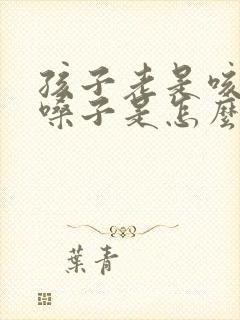 孩子老是咳
嗓子是怎麼
葉青